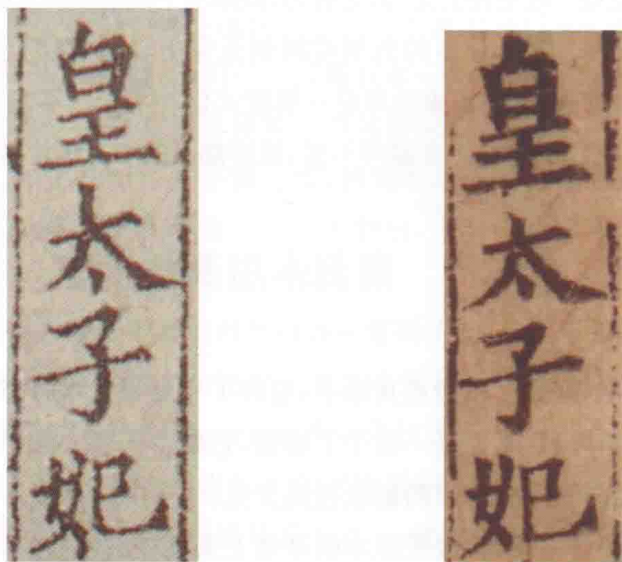 皇太子妃
皇太子妃